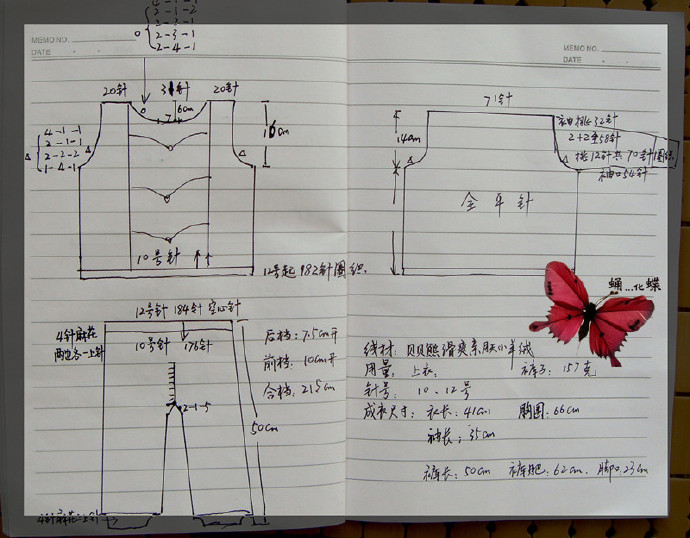 4-1-1
2-1-2
2-2-1
2-3-1
2-4-1
MEMO NO.
DATE
20针
31针
20针
6cm
7
16cm
4-1-1
2-1-1
2-2-2
1-4-1
10号针
12号起182针圈织.
MEMO NO.
DATE
71针
袖挑32针
2+2至58针
挑12针共70针圈织
袖口54针
14cm
全平针
蛹...化蝶
12号针 184针 空心针
4针麻花
两边各一上针
10号针 176针
2-1-5
50cm
4针麻花一上针
后裆: 7.5cm开
前裆: 10cm开
合裆: 21.5cm
线材: 贝贝熊滑爽亲肤小羊绒
用量: 上衣, 裤子: 157克
针号: 10、12号
成衣尺寸: 衣长: 41cm 胸围: 66cm
袖长: 35cm
裤长: 50cm 裤肥: 62cm. 脚口23cm